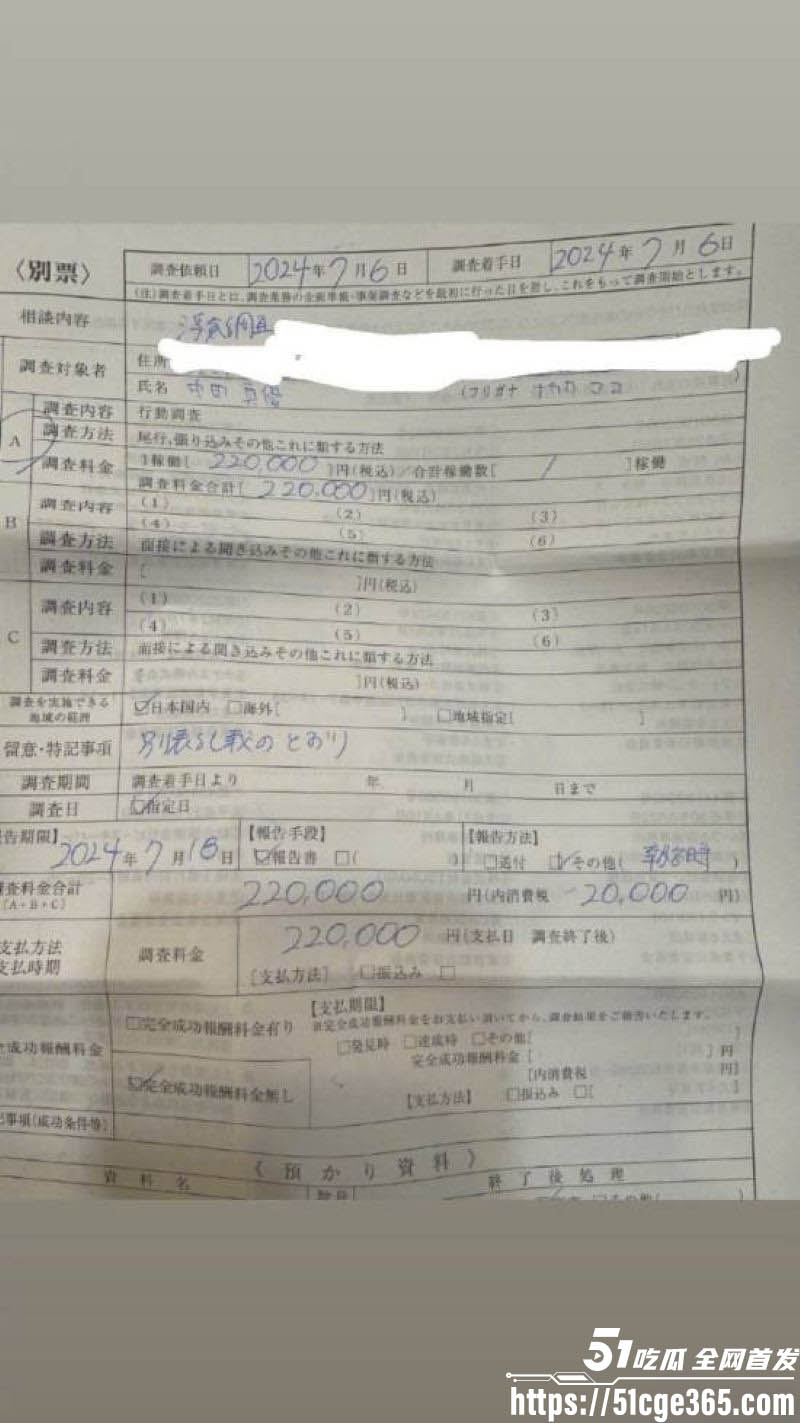 〈別票〉
調査依頼日 2024年7月6日 調査着手日 2024年7月6日
(注)調査着手日とは、調査業務の企画準備・事前調査などを最初に行った日を指し、これをもって調査開始とします。
相談内容
調査対象者 住所
氏名 (フリガナ )
A 調査内容 行動調査
調査方法 尾行、張り込みその他これに類する方法
調査料金 1稼働[ 220,000 ]円(税込)/合計稼働数[ / ]稼働
調査料金合計[ 220,000 ]円(税込)
B 調査内容 (1) (2) (3)
(4) (5) (6)
調査方法 面接による聞き込みその他これに類する方法
調査料金 [ ]円(税込)
C 調査内容 (1) (2) (3)
(4) (5) (6)
調査方法 面接による聞き込みその他これに類する方法
調査料金 ]円(税込)
調査を実施できる地域の範囲 ☑日本国内 □海外[ ] □地域指定[ ]
留意・特記事項 別表記載のとおり
調査期間 調査着手日より 年 月 日まで
調査日 ☑指定日
報告期限】 【報告手段】 【報告方法】
2024年7月 日 ☑報告書 □( ) □送付 ☑その他( )
調査料金合計
(A+B+C) 220,000 円(内消費税 20,000 円)
支払方法
支払時期 調査料金 220,000 円(支払日 調査終了後)
[支払方法] □振込み □
成功報酬料金 □完全成功報酬料金有り 【支払期限】
※完全成功報酬料金をお支払い頂いてから、調査結果をご報告いたします。
□発見時 □達成時 □その他[ ]
完全成功報酬料金[ ]円
[内消費税 円]
☑完全成功報酬料金無し 【支払方法】 □振込み □[ ]
記事項(成功条件等)
《預かり資料》
資料名 数量 終了後処理
□その他(
51吃瓜 全网首发
https://51cge365.com